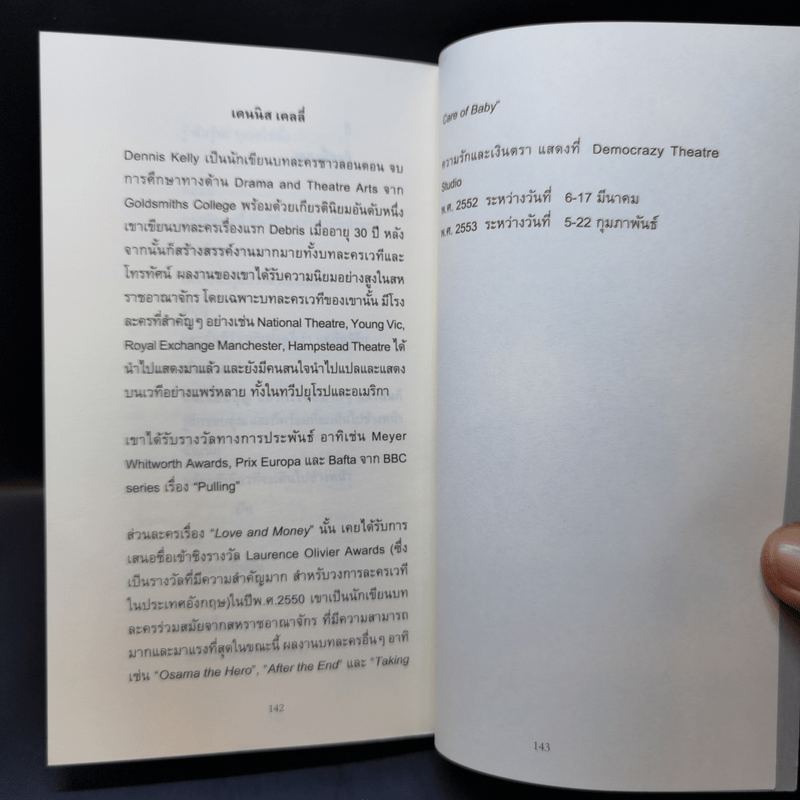 เดนนิส เคลลี่
Dennis Kelly เป็นนักเขียนบทละครชาวลอนดอน จบ
การศึกษาทางด้าน Drama and Theatre Arts จาก
Goldsmiths College พร้อมด้วยเกียรตินิยมอันดับหนึ่ง
เขาเขียนบทละครเรื่องแรก Debris เมื่ออายุ 30 ปี หลัง
จากนั้นก็สร้างสรรค์งานมากมายทั้งบทละครเวทีและ
โทรทัศน์ ผลงานของเขาได้รับความนิยมอย่างสูงในสห
ราชอาณาจักร โดยเฉพาะบทละครเวทีของเขานั้น มีโรง
ละครที่สำคัญๆ อย่างเช่น National Theatre, Young Vic,
Royal Exchange Manchester, Hampstead Theatre ได้
นำไปแสดงมาแล้ว และยังมีคนสนใจนำไปแปลและแสดง
บนเวทีอย่างแพร่หลาย ทั้งในทวีปยุโรปและอเมริกา
เขาได้รับรางวัลทางการประพันธ์ อาทิเช่น Meyer
Whitworth Awards, Prix Europa และ Bafta จาก BBC
series เรื่อง "Pulling"
ส่วนละครเรื่อง "Love and Money" นั้น เคยได้รับการ
เสนอชื่อเข้าชิงรางวัล Laurence Olivier Awards (ซึ่ง
เป็นรางวัลที่มีความสำคัญมาก สำหรับวงการละครเวที
ในประเทศอังกฤษ)ในปีพ.ศ.2550 เขาเป็นนักเขียนบท
ละครร่วมสมัยจากสหราชอาณาจักร ที่มีความสามารถ
มากและมาแรงที่สุดในขณะนี้ ผลงานบทละครอื่นๆ อาทิ
เช่น "Osama the Hero", "After the End" และ "Taking
142
Care of Baby"
ความรักและเงินตรา แสดงที่ Democrazy Theatre
Studio
พ.ศ. 2552 ระหว่างวันที่ 6-17 มีนาคม
พ.ศ. 2553 ระหว่างวันที่ 5-22 กุมภาพันธ์
143